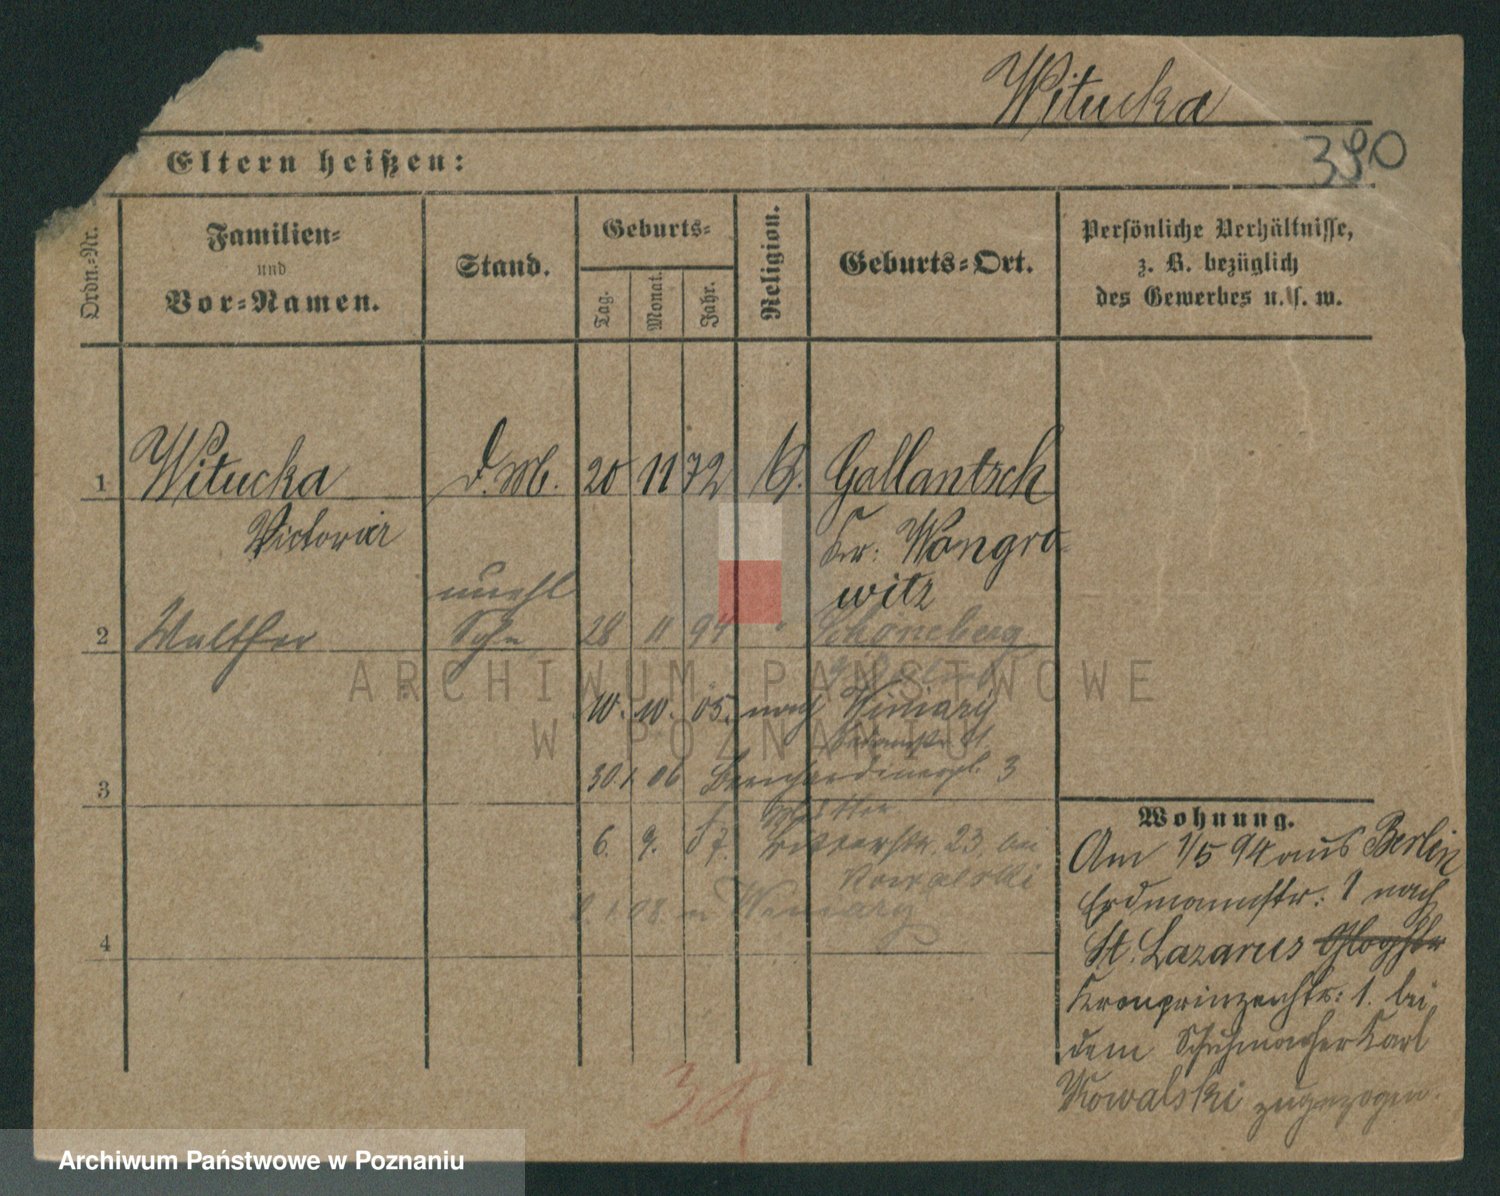 Witucka
390
Eltern heißen:
Ordn.-Nr.
Familien-
und
Vor-Namen.
Stand.
Geburts-
Tag.
Monat.
Jahr.
Religion.
Geburts-Ort.
Persönliche Verhältnisse,
z. B. bezüglich
des Gewerbes u. s. w.
1 Witucka d. M. 20 11 72 K. Gollantsch
Kr: Wongro-
witz
unehl
2 Walther Sohn 28 11 94 " Schöneberg
10. 10. 05. nach Winiary
30.1.06 Bernhardinerpl. 3
3
6. 9. 07. Ritterstr. 23. bei
Kowalski
1.08. n Winiary
4
Wohnung.
Am 1/5 94 aus Berlin
Erdmannstr: 1 nach
St. Lazarus Glogstr
Kronprinzenstr: 1. bei
dem Schuhmacher Karl
Kowalski zugezogen.
ARCHIWUM PAŃSTWOWE
W POZNANIU
Archiwum Państwowe w Poznaniu